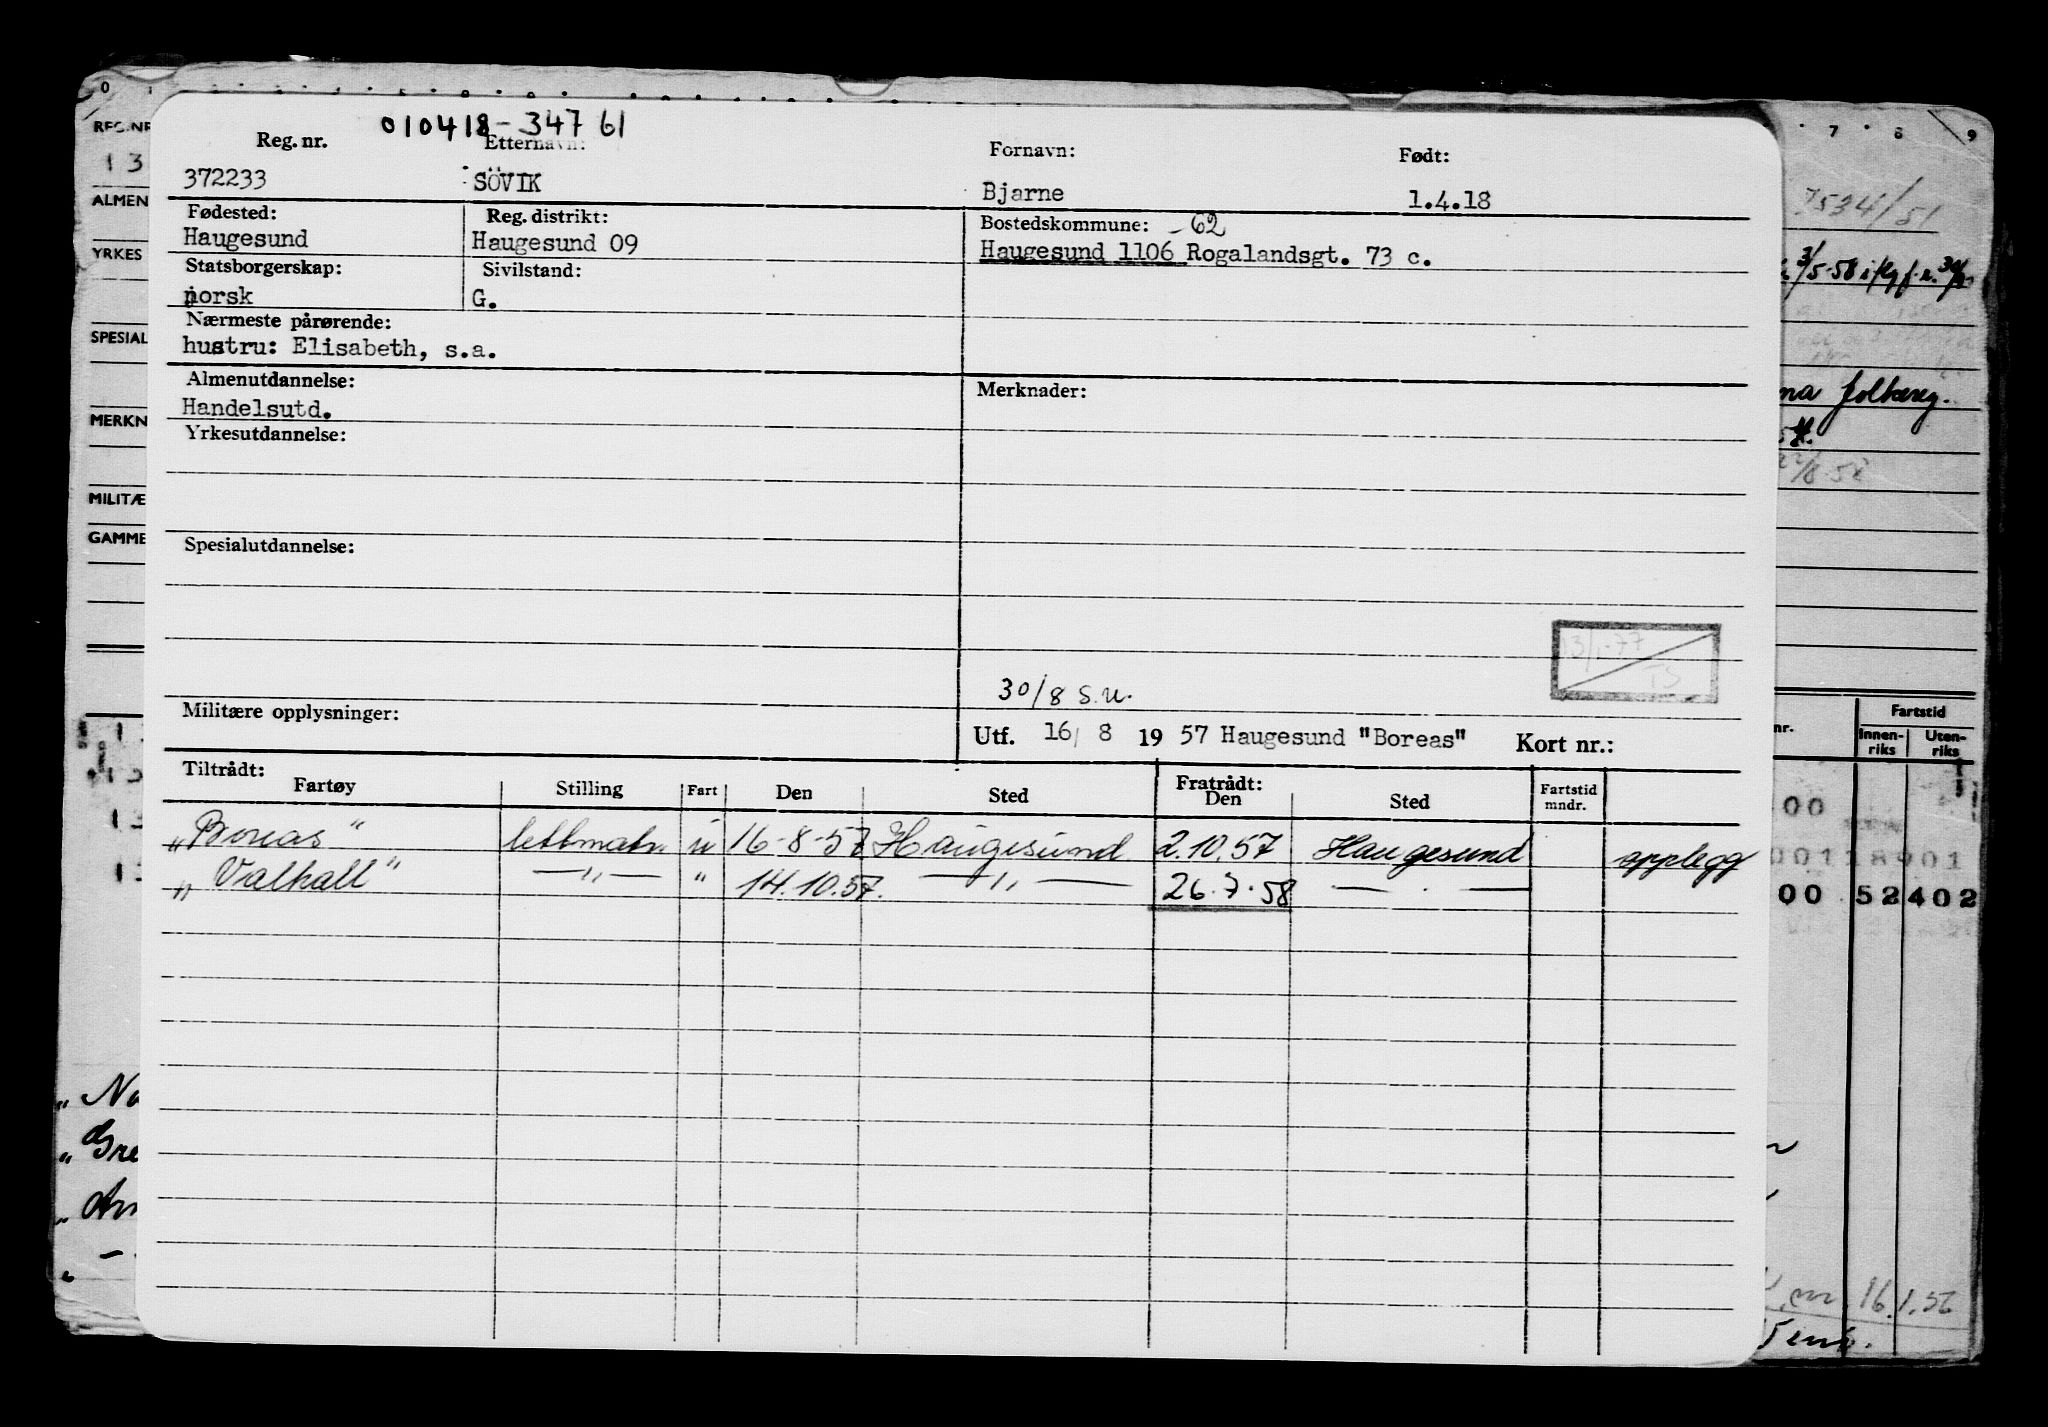 010418-34761
Reg. nr. Etternavn: Fornavn: Født:
372233 SÖVIK Bjarne 1.4.18
Fødested: Reg. distrikt: Bostedskommune: -62
Haugesund Haugesund 09 Haugesund 1106 Rogalandsgt. 73 c.
Statsborgerskap: Sivilstand:
norsk G.
Nærmeste pårørende:
hustru: Elisabeth, s.a.
Almenutdannelse: Merknader:
Handelsutd.
Yrkesutdannelse:
Spesialutdannelse:
13/1-77
30/8 s.u.
Militære opplysninger: Utf. 16/ 8 19 57 Haugesund "Boreas" Kort nr.:
Tiltrådt: Fratrådt:
Fartøy Stilling Fart Den Sted Den Sted Fartstid mndr.
„Boreas" lettmatr. u 16-8-57 Haugesund 2.10.57 Haugesund opplegg
„Valhall" —„— " 14.10.57. —„— 26.7.58 — . —
REG.NR
13
ALMEN
YRKES
SPESIAL
MERKN
MILITÆ
GAMME
7 8 9
7534/51
3/5-58
folkereg.
/8-58
nr. Fartstid
Innen-riks Uten-riks
00
00118901
00 52402
„ No
„ Gre
„ An
16.1.56